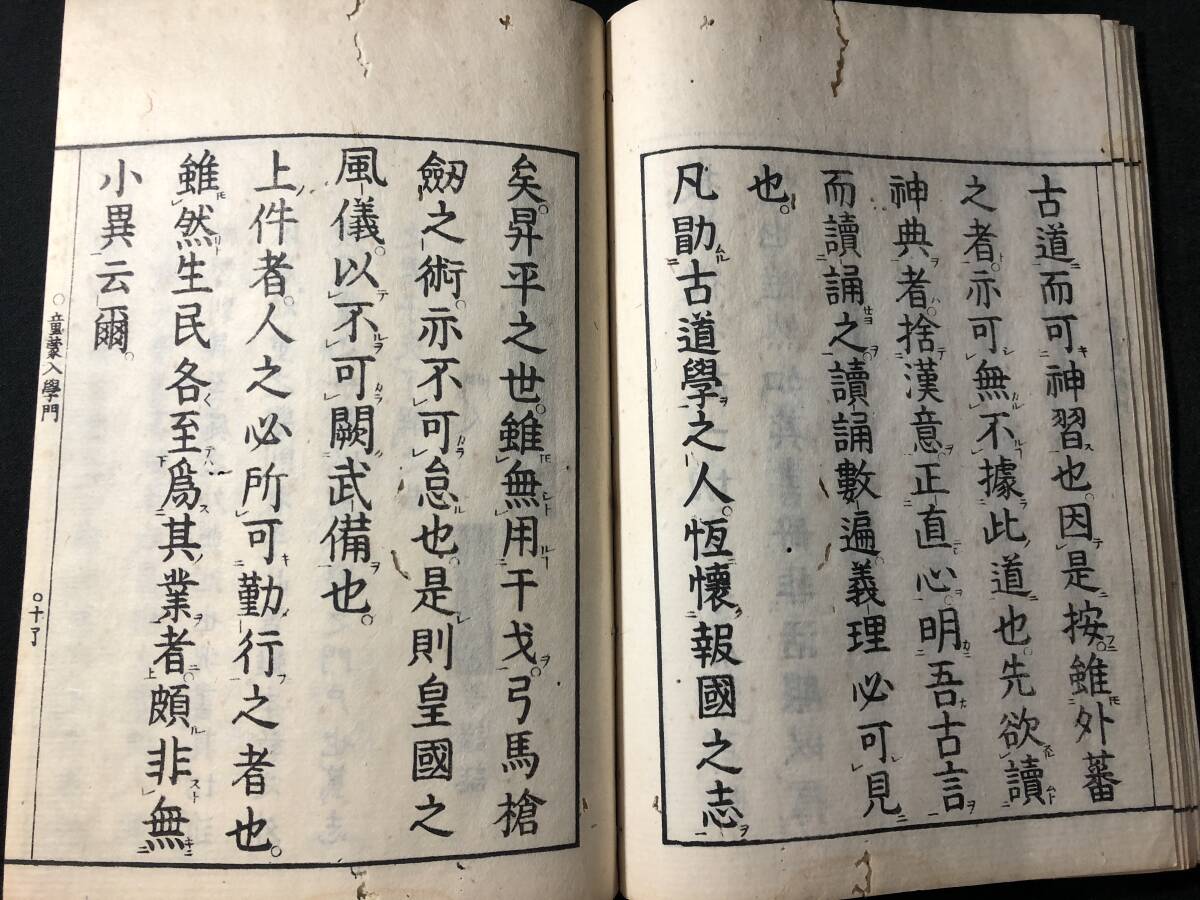 古道而可神習也。因是按。雖外蕃
之者。亦可無不據此道也。先欲讀
神典者。捨漢意正直心。明吾古言
而讀誦之。讀誦數遍。義理必可見
也。
凡勖古道學之人。恆懷報國之志
矣。昇平之世。雖無用干戈。弓馬槍
劒之術。亦不可怠也。是則皇國之
風儀。以不可闕武備也。
上件者。人之必所可勤行之者也。
雖然生民各至爲其業者。頗非無
小異云爾。
童蒙入學門
十了